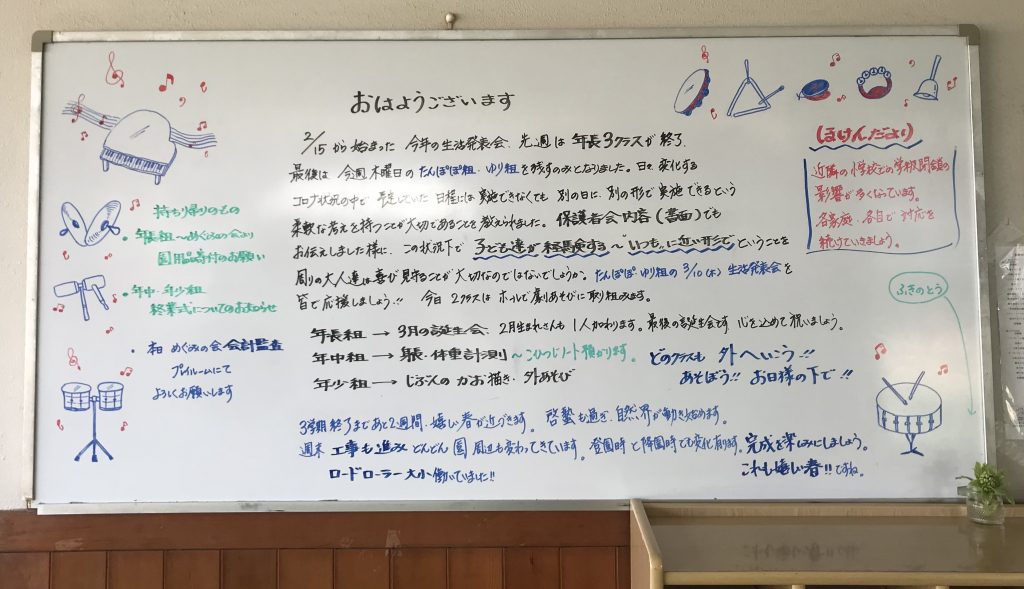 おはようございます
2/15から始まった 今年の生活発表会、先週は 年長3クラスが終了、
最後は 今週木曜日の たんぽぽ組・ゆり組を残すのみとなりました。日々変化する
コロナ状況の中で 予定していた日程には実施できなくても 別の日に、別の形で実施できるという
柔軟な考えを持つことが大切であることを教えられました。保護者会内容(書面)でも
お伝えしました様に、この状況下で 子ども達が経験する〜"いつも"に近い形でということを
周りの大人達は喜び見守ることが大切なのではないでしょうか。たんぽぽ ゆり組の 3/10(木) 生活発表会を
皆で応援しましょう!! 今日 2クラスは ホールで劇あそびに取り組みます。
年長組 → 3月の誕生会、2月生まれさんも 1人加わります。最後の誕生会です 心を込めて祝いましょう。
年中組 → 身長・体重計測 〜こひつじノート預かります。
年少組 → じぶんのかお描き・外あそび
どのクラスも 外へいこう!!
あそぼう!! お日様の下で!!
3学期終了まであと2週間・嬉しい春が近づきます。啓蟄も過ぎ、自然界が動き始めます。
週末 工事も進み どんどん 園周辺も変わってきています。登園時と降園時でも変化有ります。完成を楽しみにしましょう。
ロードローラー大小働いていました!!
これも嬉しい春!!ですね。
持ち帰りのもの
・年長組〜めぐみの会より
園用品寄付のお願い
・年中・年少組
終業式についてのおしらせ
・本日 めぐみの会会計監査
プレイルームにて
よろしくお願いします
(ほけんだより)
近隣の小学校での学校閉鎖の
影響が多くなっています。
各家庭・各自で対応を
続けていきましょう。
ふきのとう